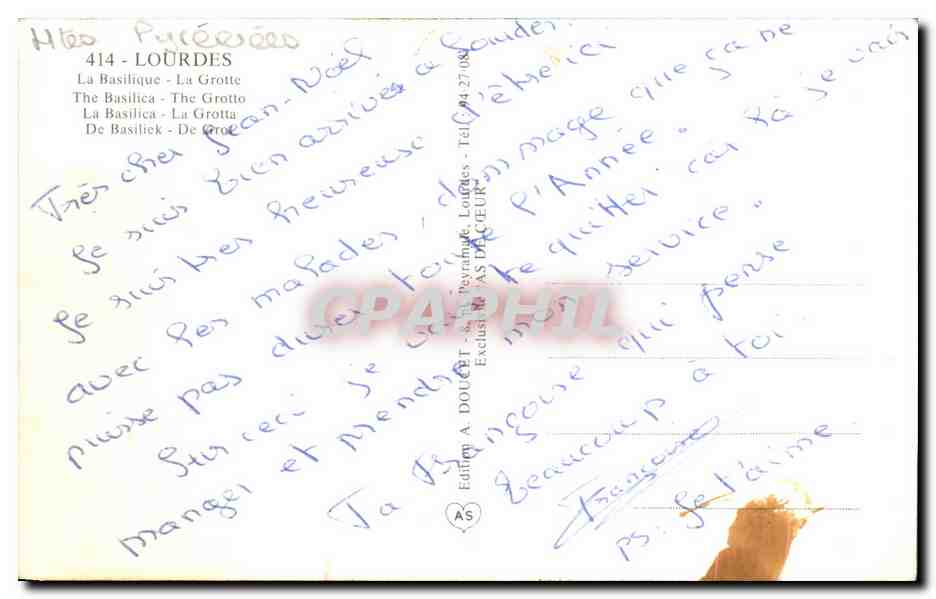 Htes Pyrénées
414 - LOURDES
La Basilique - La Grotte
The Basilica - The Grotto
La Basilica - La Grotta
De Basiliek - De Grot
Très cher Jean-Noël
Je suis bien arrivée à Lourdes.
Je suis très heureuse d'être ici
avec les malades, dommage que ça ne
puisse pas durer toute l'Année.
Sur ceci je vais te quitter car là je vais
manger et prendre mon service.
Ta Françoise qui pense
beaucoup à toi
Françoise
ps: Je t'aime
Edition A. DOUCET - 8, Pl. Peyramale, Lourdes - Tél. : 94-27-08
Exclusivité "AS DE CŒUR"
AS
CPAPHIL